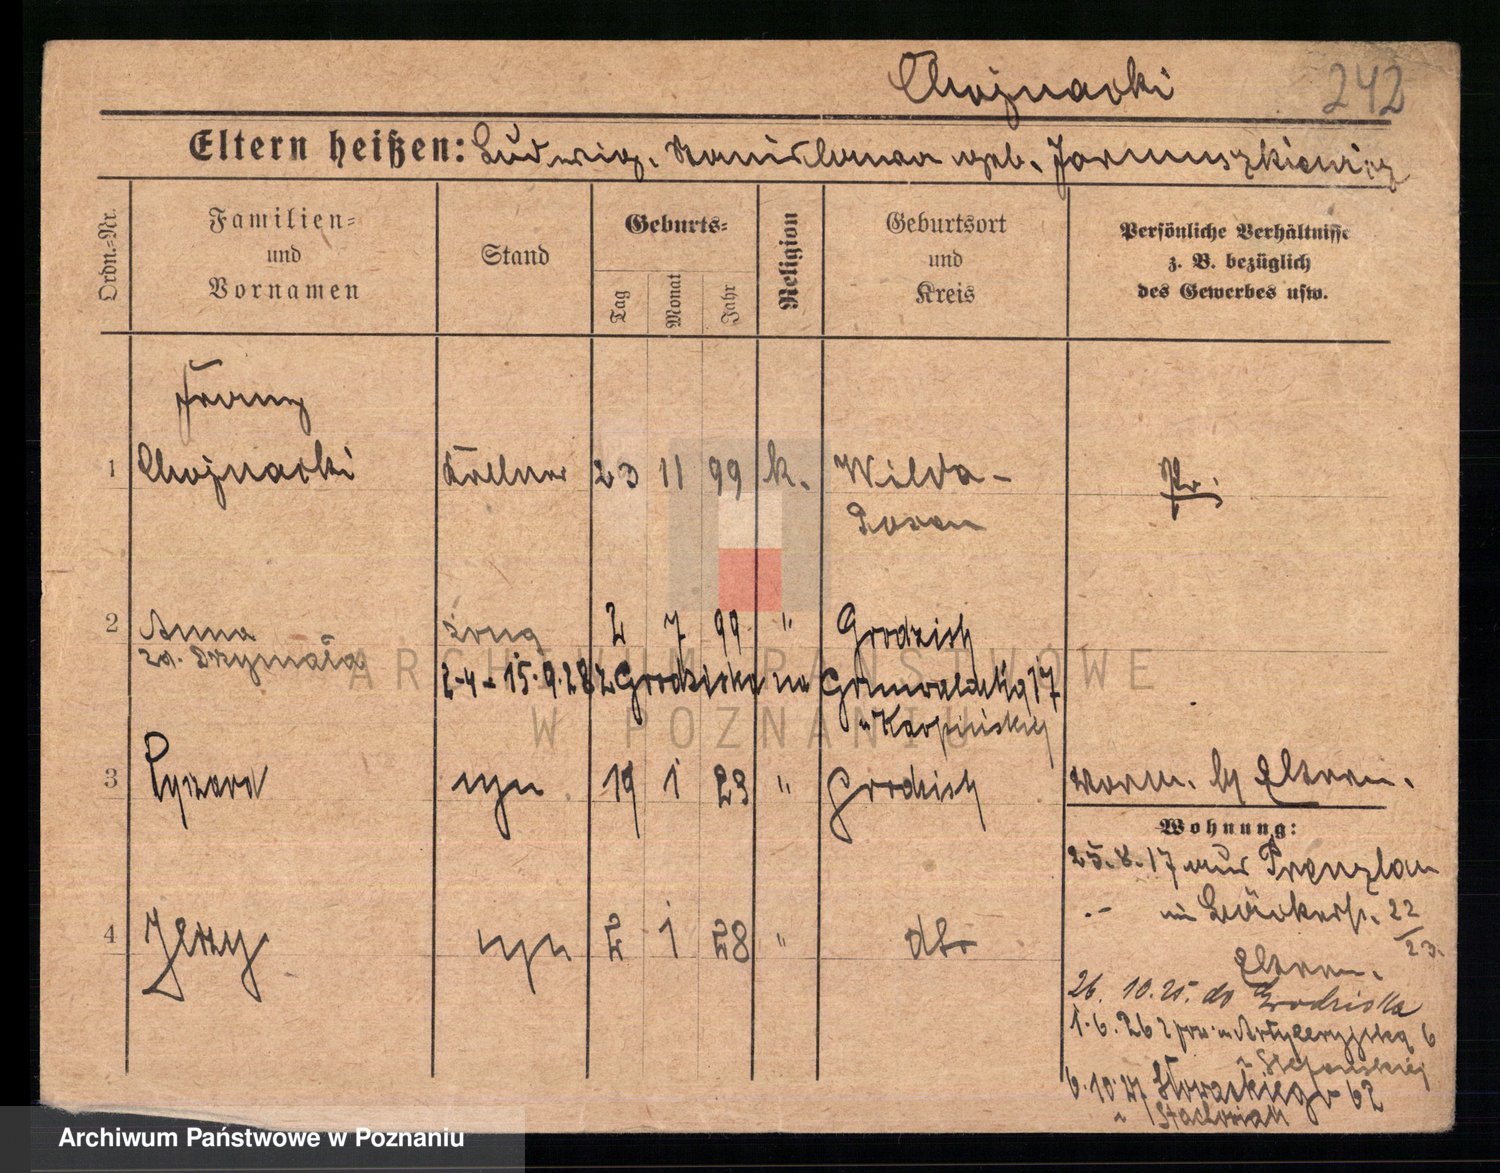 Chojnacki
242
Eltern heißen: Ludwig, Stanislawa geb. Jarmuszkiewicz
Ordn.-Nr.
Familien-
und
Vornamen
Stand
Geburts-
Tag
Monat
Jahr
Religion
Geburtsort
und
Kreis
Persönliche Verhältnisse
z. B. bezüglich
des Gewerbes usw.
Franz
1 Chojnacki Kellner 23 11 99 k. Wilda-
Posen
Pr.
2 Anna żona 2 7 99 " Grodzisk
zd.
2-4 - 15.9.28 z Grodziska na Grunwaldzką 17
u Karpińskiej
3 Ryszard syn 19 1 23 " Grodzisk
4 Jerzy syn 2 1 28 " dto
worm. by Eltern.
Wohnung:
25.8.17 aus Prenzlau
in Bäckerstr. 22/23.
Eltern.
26. 10.25. do Grodziska
1.6.26 z pow. u Artyleryjska 6
u Stefańskiej
6.10.27 Słowackiego 62
u Stachowiak
ARCHIWUM PAŃSTWOWE
W POZNANIU
Archiwum Państwowe w Poznaniu